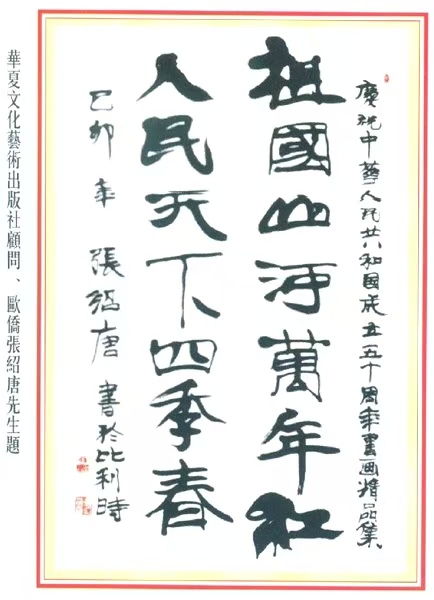 慶祝中華人民共和國成立五十周年書画精品集
祖國山河萬年紅
人民天下四季春
己卯年 張紹唐 書於比利時
華夏文化藝術出版社顧問、歐僑張紹唐先生題